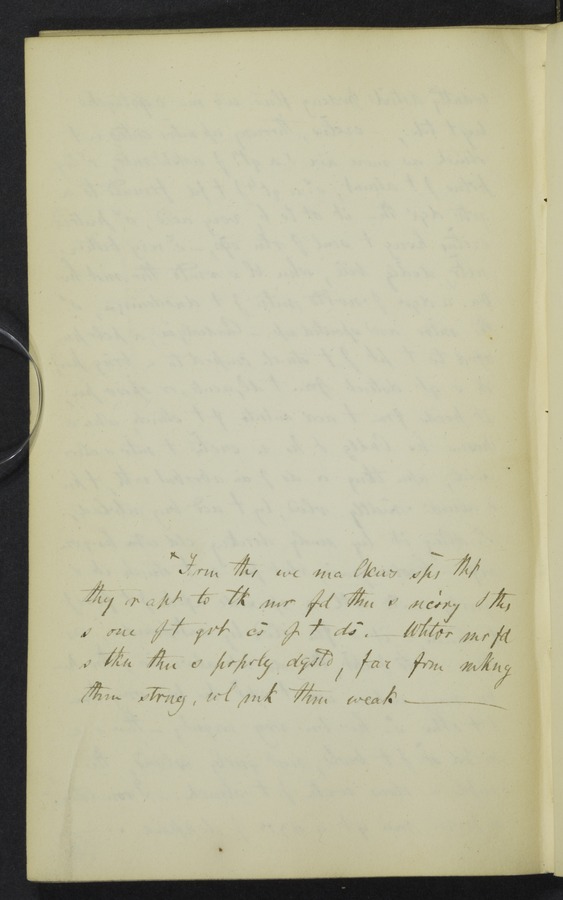 * From ths we ma lkws sps tht
thy r apt to tk mr fd thn s ncsry & ths
s one f t grt cs f t ds. — Whtvr mr fd
s tkn thn s prprly dgstd, far frm mkng
thm strng, wl mk thm weak —